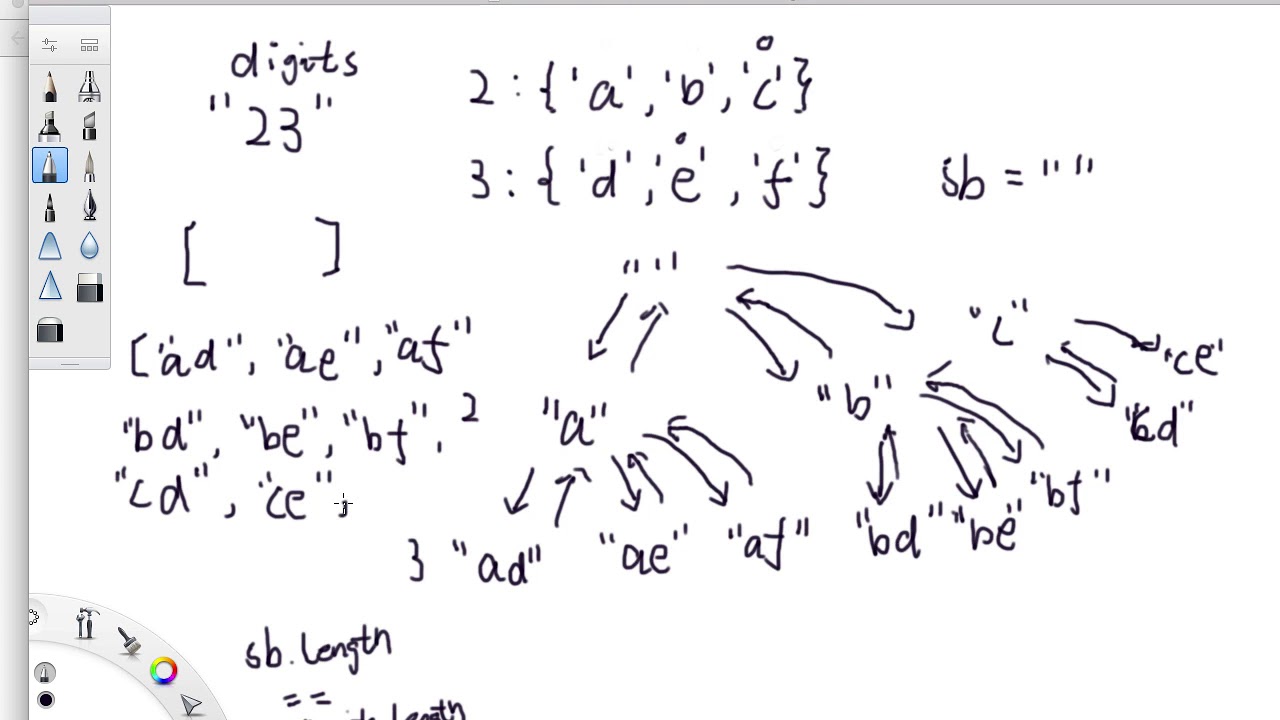 digits
"23"
2 : {'a', 'b', 'c'}
3 : {'d', 'e', 'f'}
sb = " "
[ ]
["ad", "ae", "af"
"bd", "be", "bf",
"cd", "ce",
" "
2 "a"
"b"
"c"
"ce"
"cd"
3 "ad" "ae" "af" "bd" "be" "bf"
sb.length
==
length